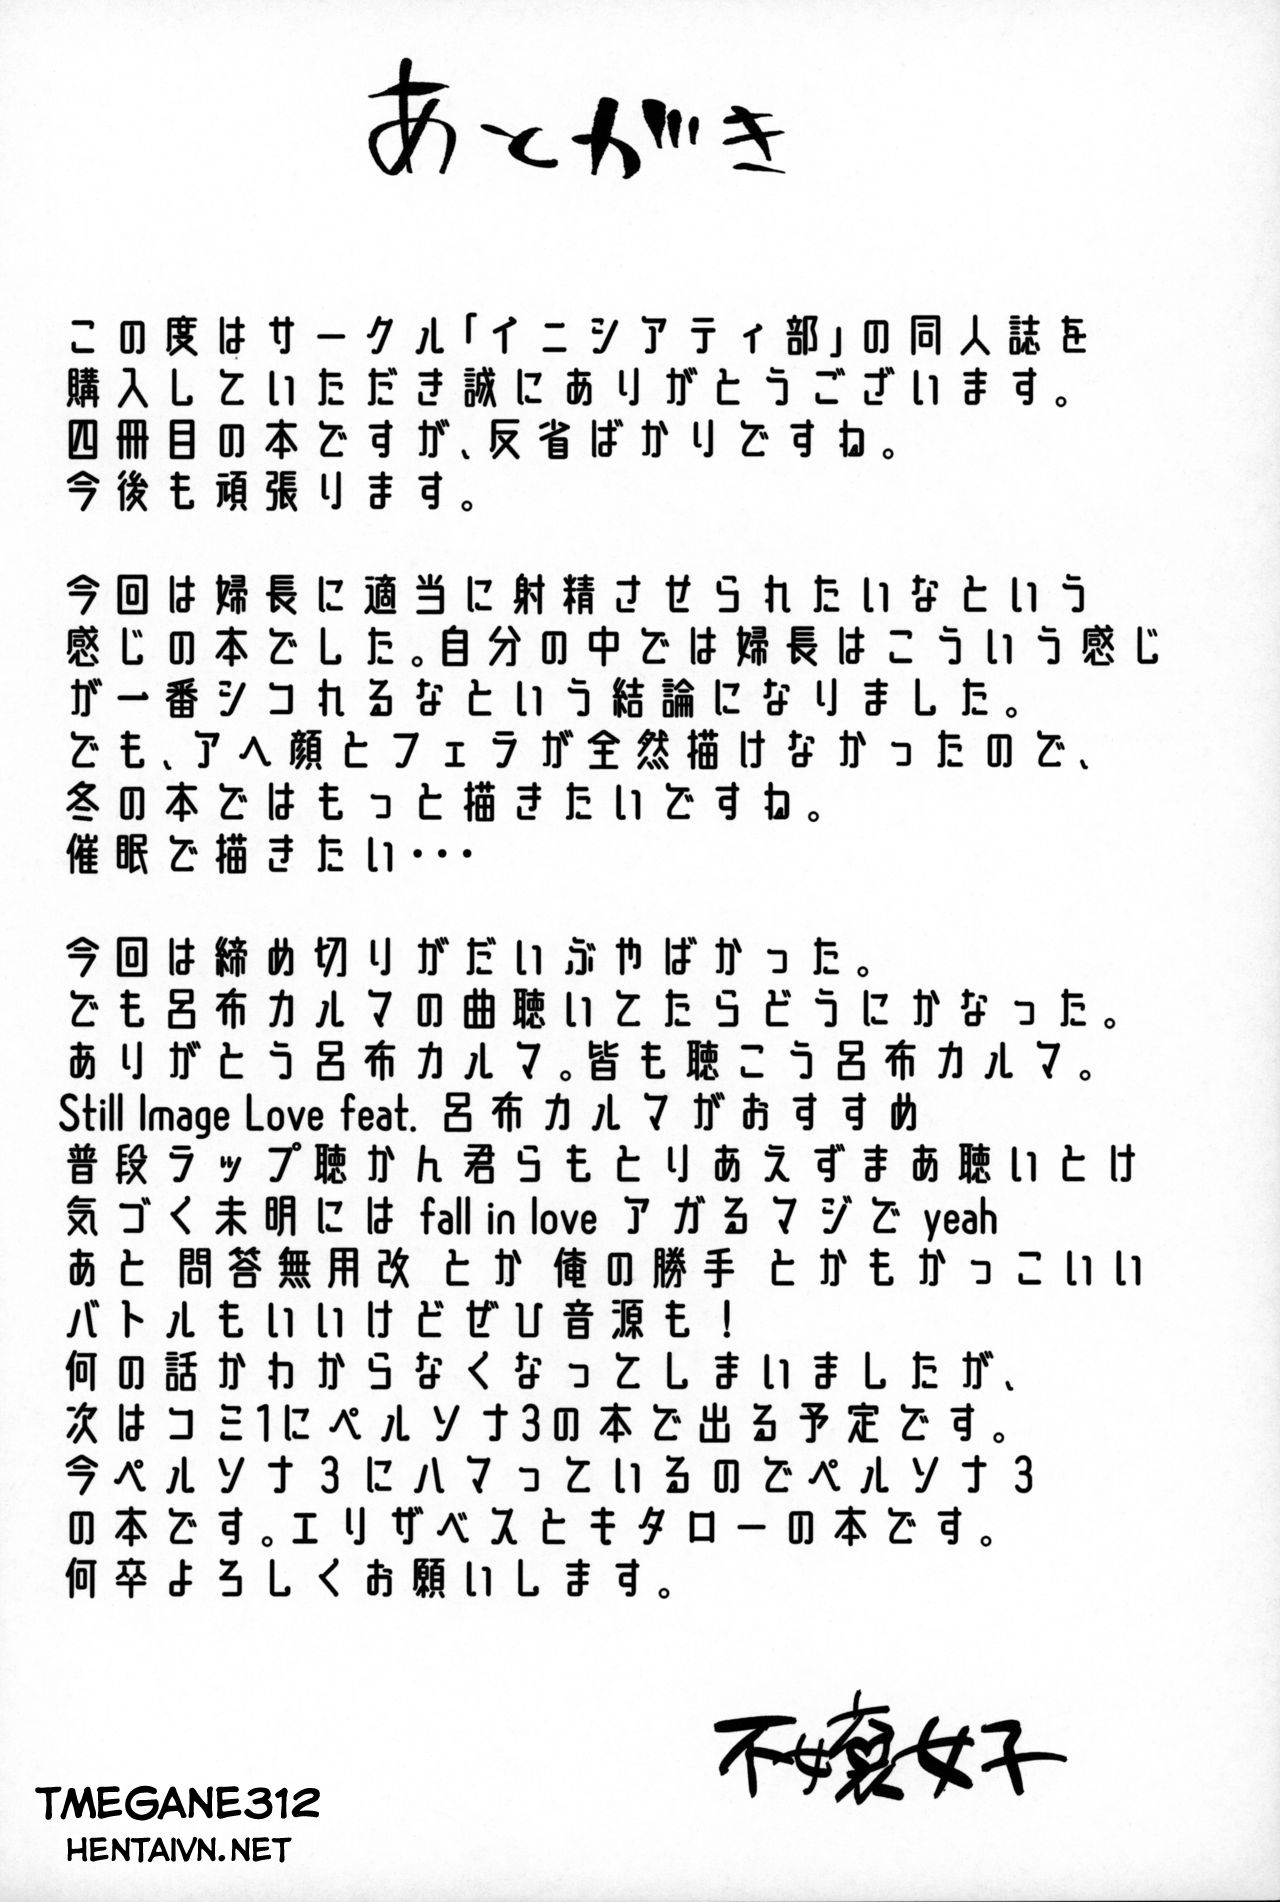 あとがき
この度はサークル「イニシアティ部」の同人誌を
購入していただき誠にありがとうございます。
四冊目の本ですが、反省ばかりですね。
今後も頑張ります。
今回は婦長に適当に射精させられたいなという
感じの本でした。自分の中では婦長はこういう感じ
が一番シコれるなという結論になりました。
でも、アへ顔とフェラが全然描けなかったので、
冬の本ではもっと描きたいですね。
催眠で描きたい・・・
今回は締め切りがだいぶやばかった。
でも呂布カルマの曲聴いてたらどうにかなった。
ありがとう呂布カルマ。皆も聴こう呂布カルマ。
Still Image Love feat. 呂布カルマがおすすめ
普段ラップ聴かん君らもとりあえずまあ聴いとけ
気づく未明には fall in love アガるマジで yeah
あと 問答無用改 とか 俺の勝手 とかもかっこいい
バトルもいいけどぜひ音源も！
何の話かわからなくなってしまいましたが、
次はコミ1にペルソナ3の本で出る予定です。
今ペルソナ3にハマっているのでペルソナ3
の本です。エリザベスとモタローの本です。
何卒よろしくお願いします。
不嬢女子
TMEGANE312
HENTAIVN.NET